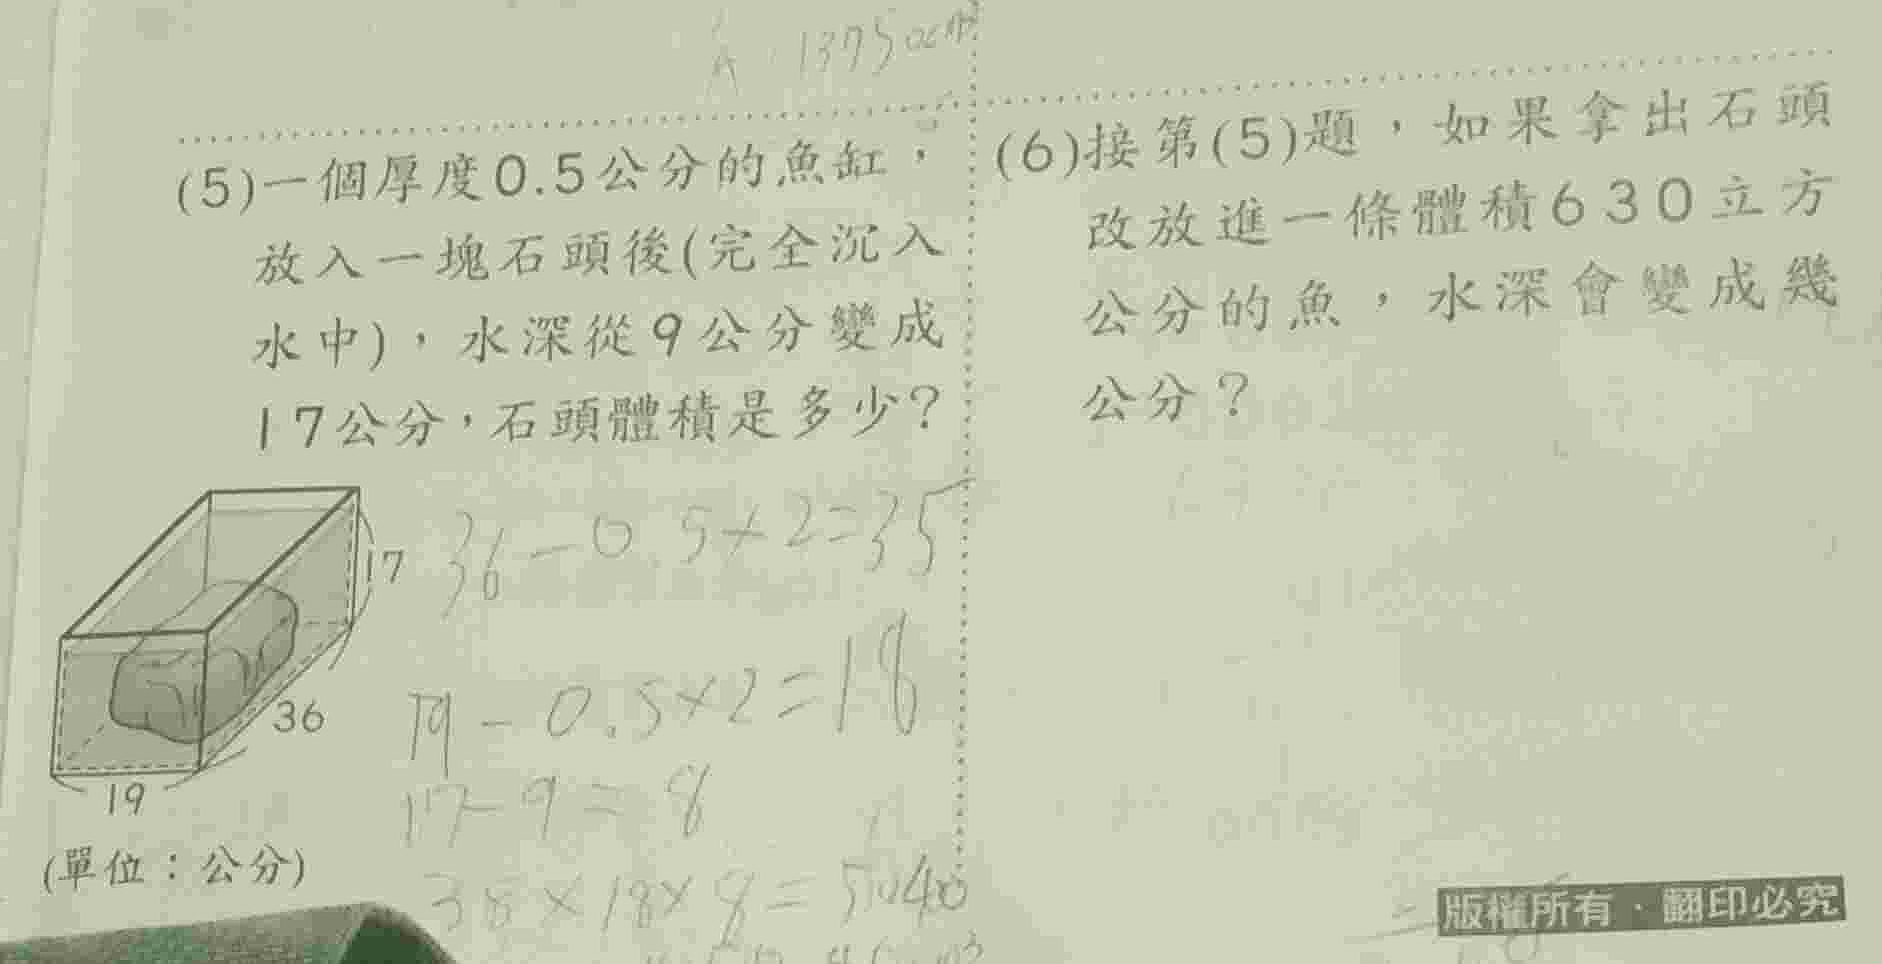 A 13750cm³
(5)一個厚度0.5公分的魚缸，
放入一塊石頭後(完全沉入
水中)，水深從9公分變成
17公分，石頭體積是多少？
17
36
19
(單位：公分)
36-0.5×2=35
19-0.5×2=18
17-9=8
35×18×8=5040
(6)接第(5)題，如果拿出石頭
改放進一條體積630立方
公分的魚，水深會變成幾
公分？
版權所有·翻印必究